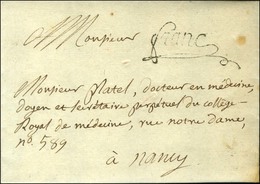 A Monsieur
franc
Monsieur Platel, docteur en médecine,
doyen et secrétaire perpétuel du collège
Royal de médecine, rue notre dame,
n°. 589
à nancy